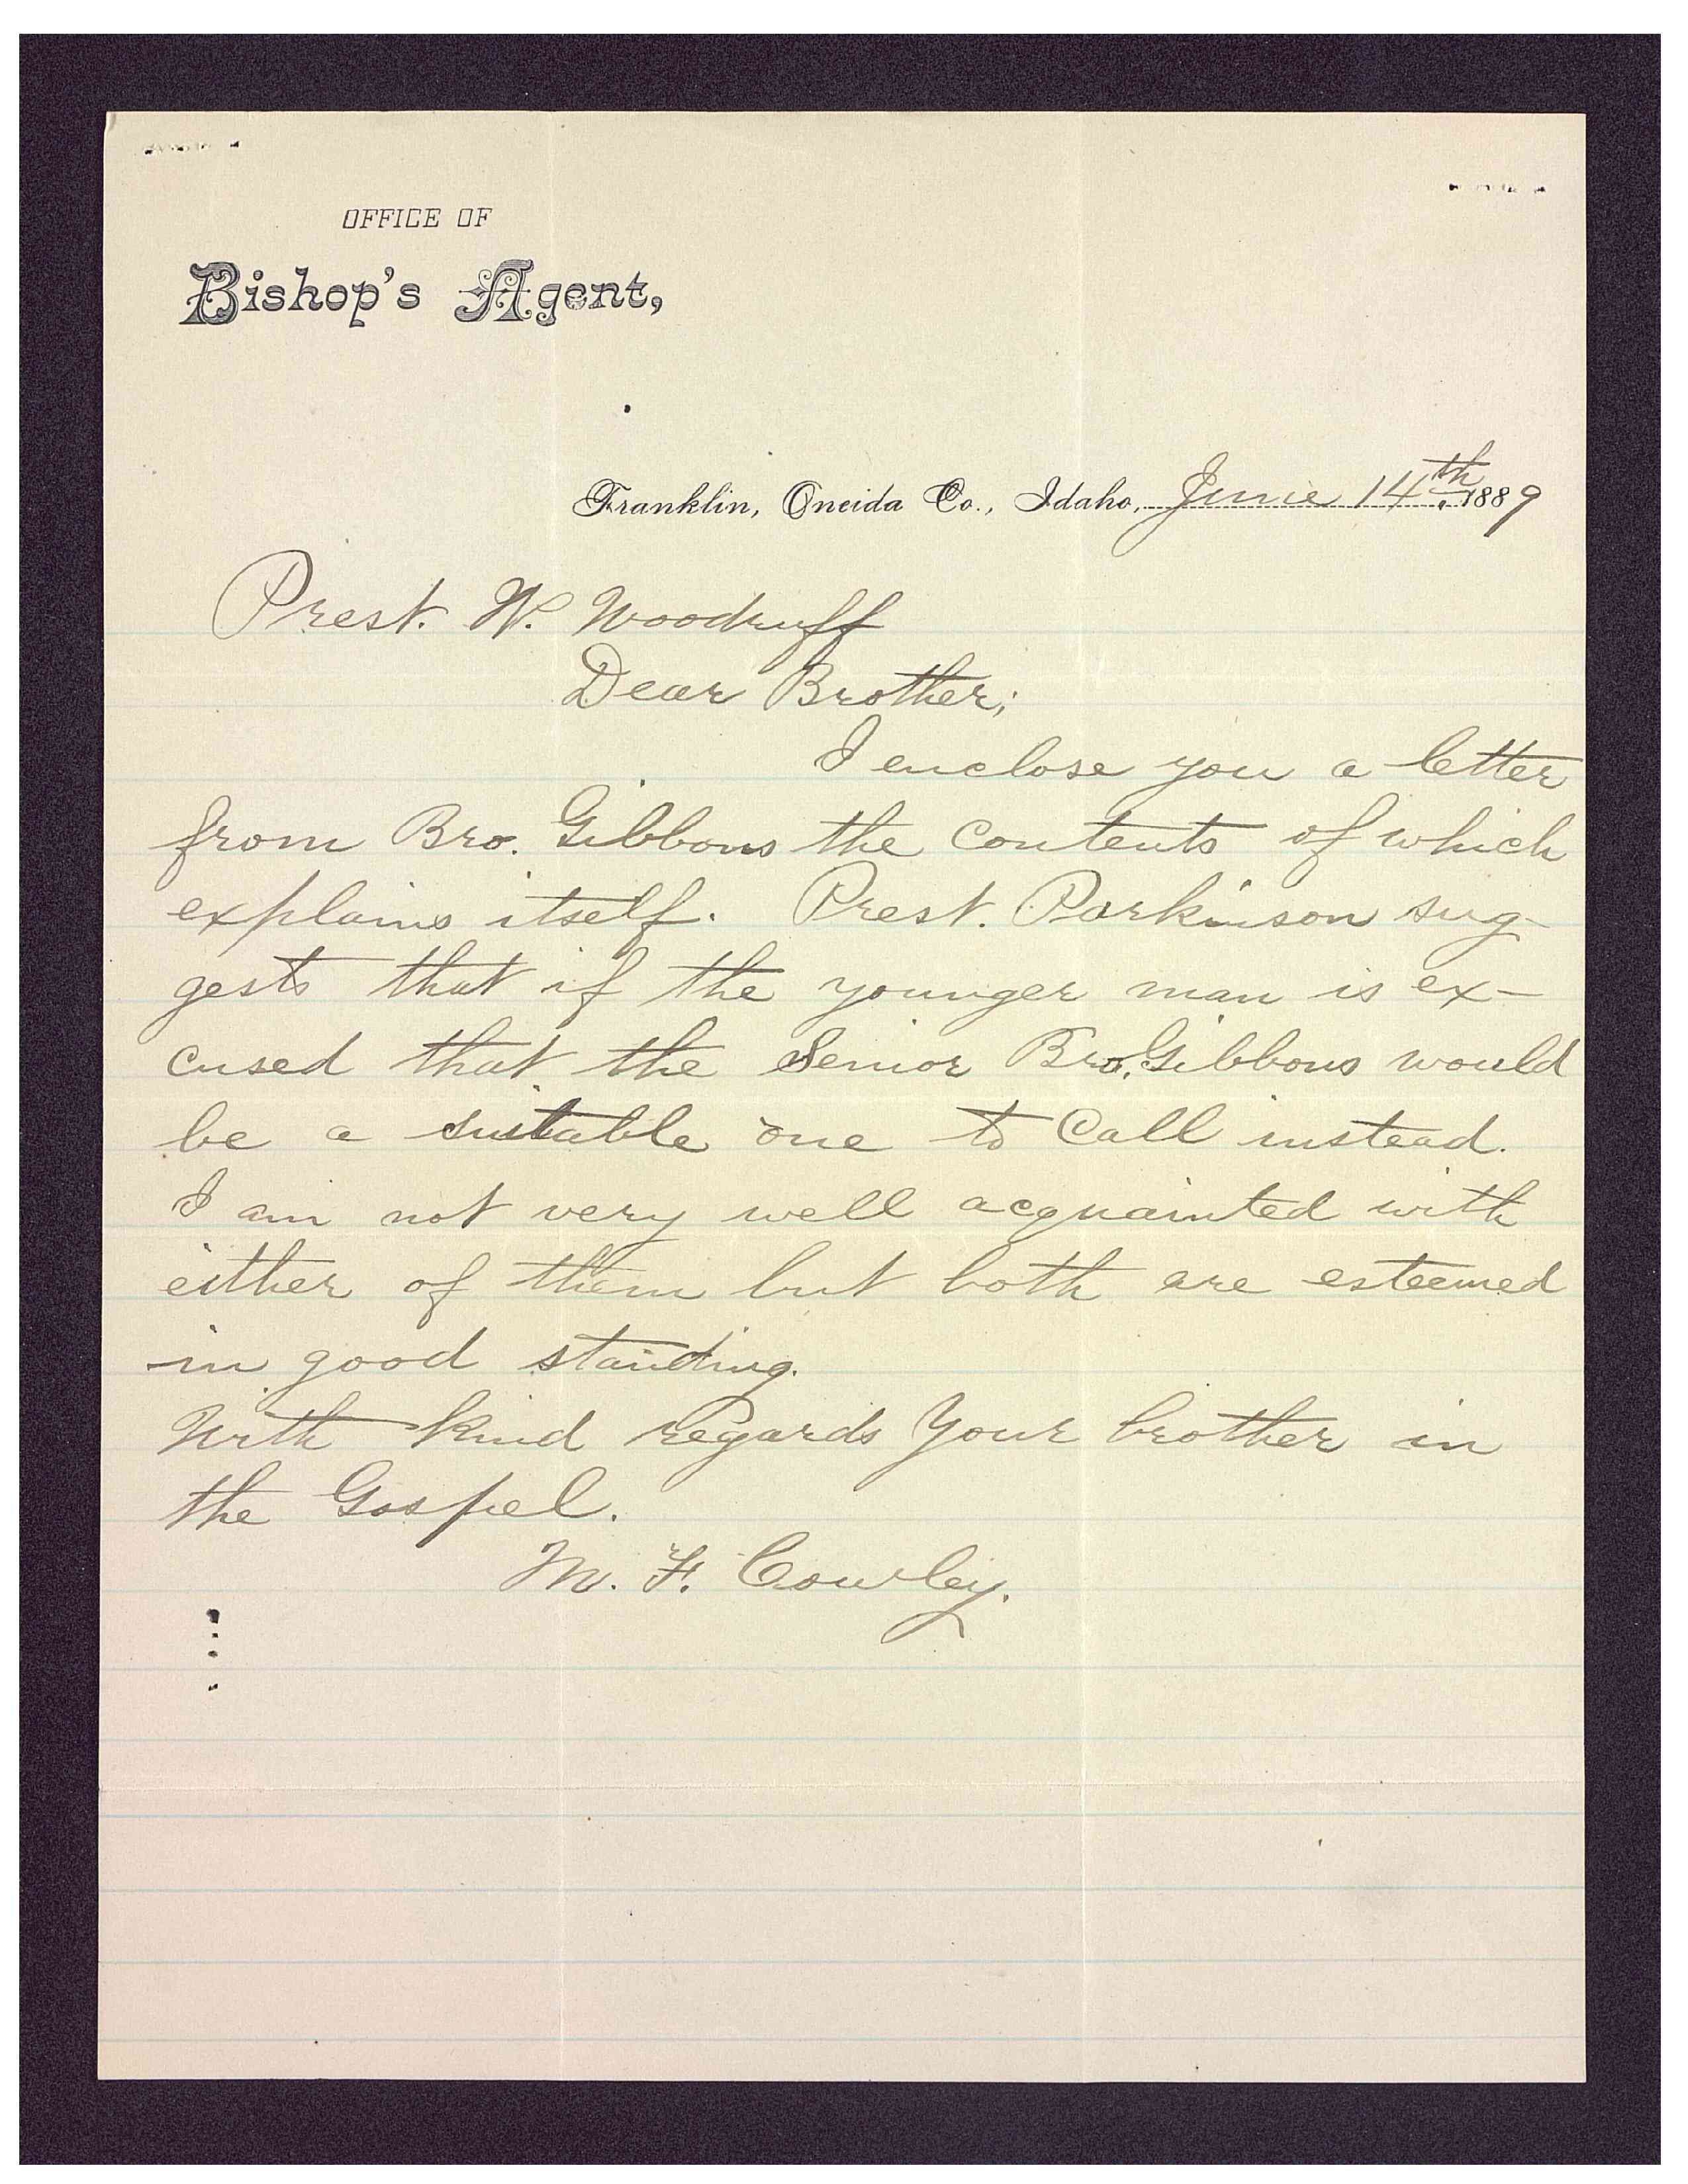 OFFICE OF
Bishop's Agent,
Franklin, Oneida Co., Idaho, June 14th 1889
Prest. W. Woodruff
Dear Brother;
I enclose you a letter
from Bro. Gibbons the contents of which
explains itself. Prest. Parkinson sug-
gests that if the younger man is ex-
cused that the Senior Bro. Gibbons would
be a suitable one to Call instead.
I am not very well acquainted with
either of them but both are esteemed
in good standing.
With kind regards Your brother in
the Gospel.
M. F. Cowley.